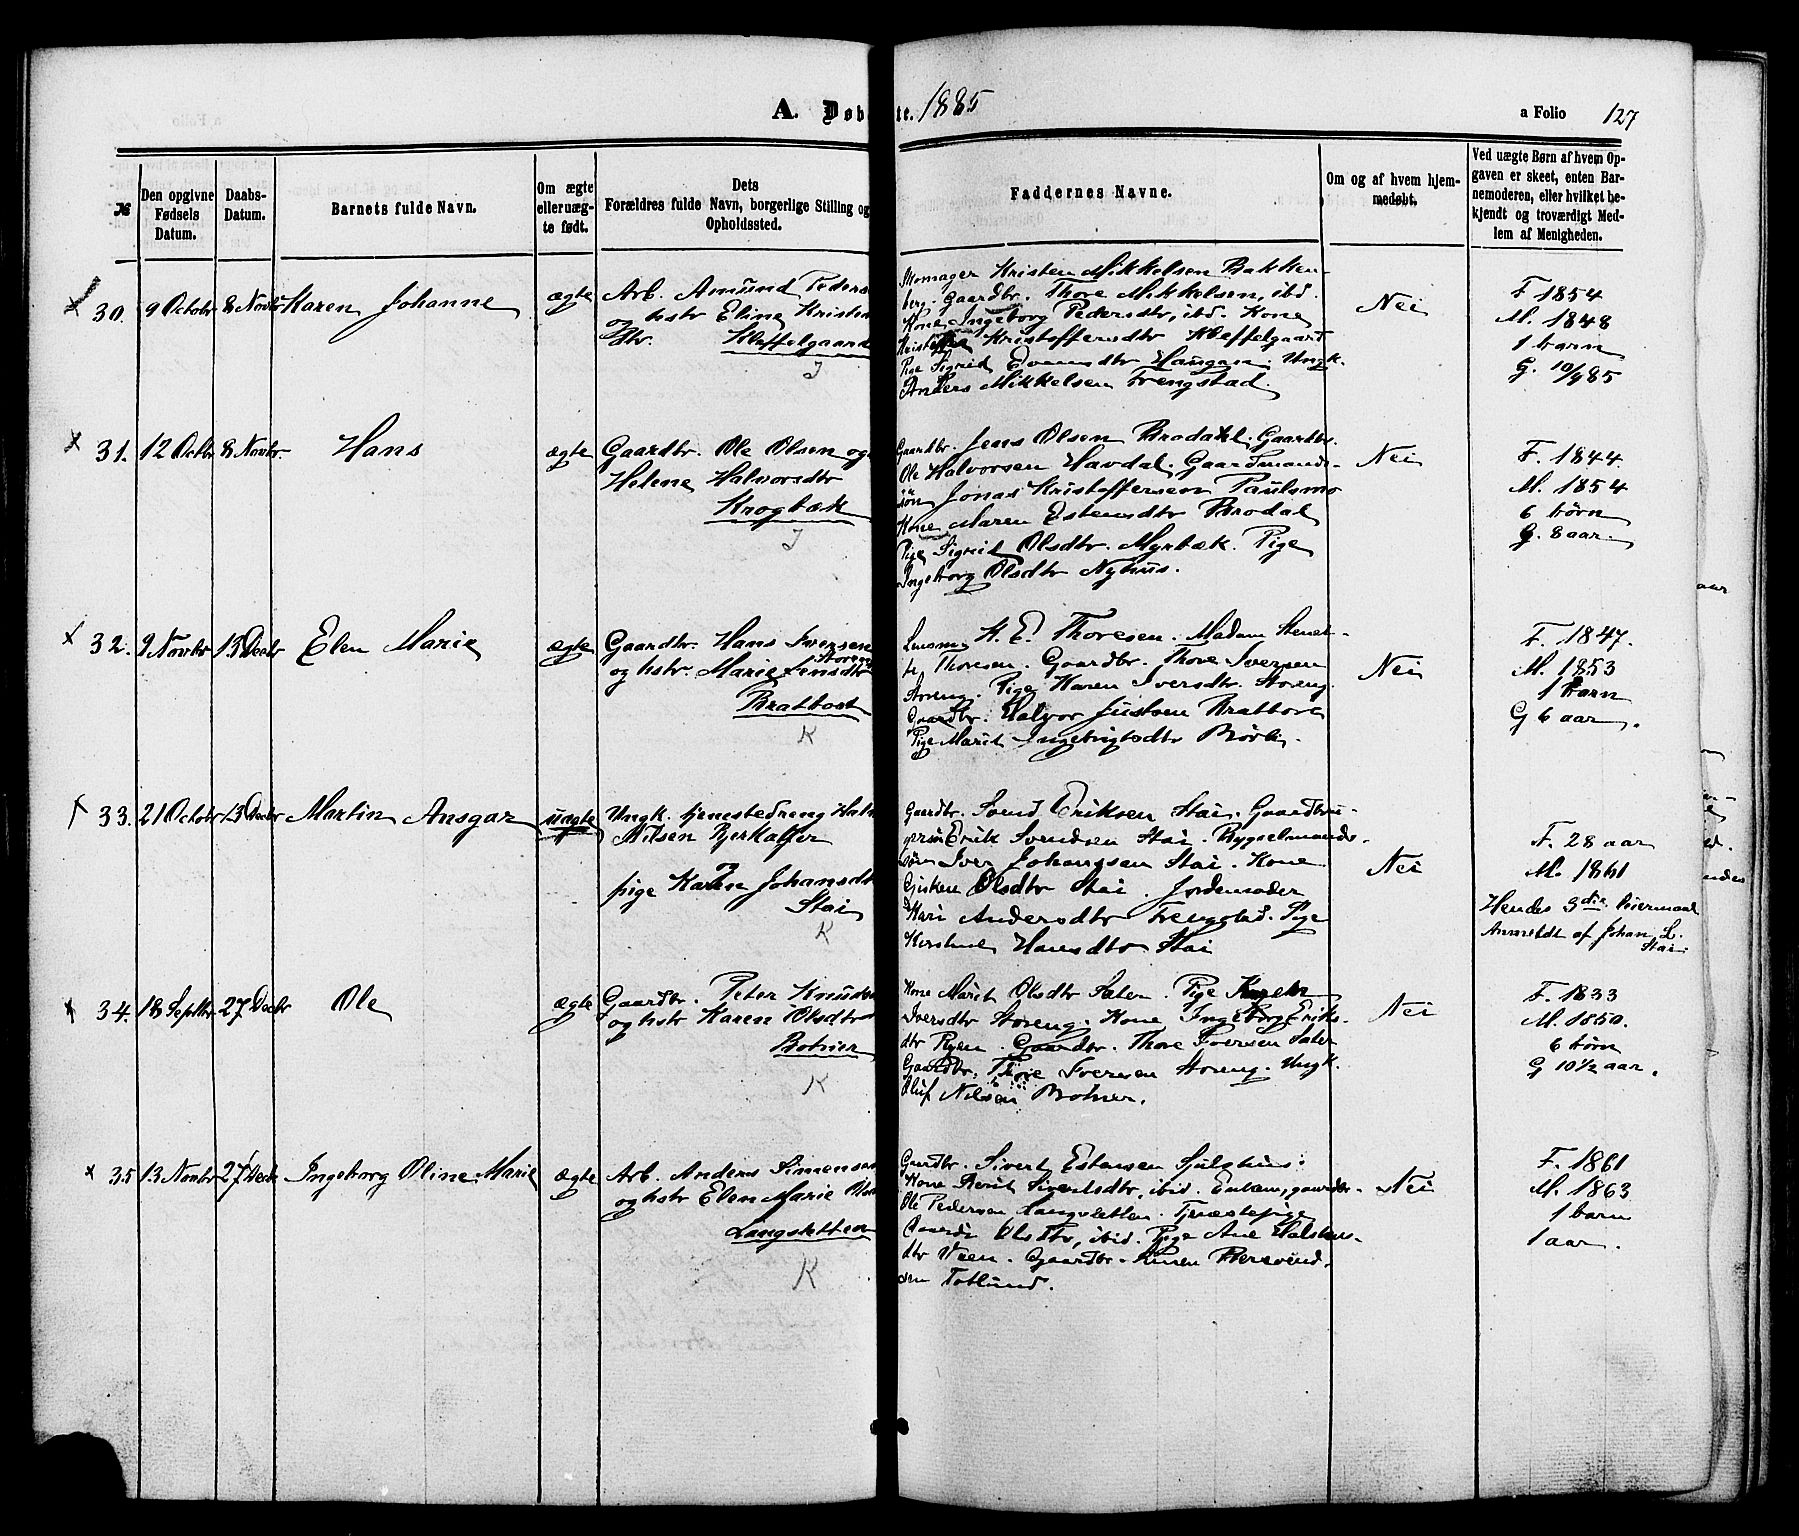 A. Døb
te. 1885
a Folio 127
№
Den opgivne Fødsels Datum.
Daabs-Datum.
Barnets fulde Navn.
Om ægte eller uæg-te født.
Dets Forældres fulde Navn, borgerlige Stilling og Opholdssted.
Faddernes Navne.
Om og af hvem hjem-medøbt.
Ved uægte Børn af hvem Op-gaven er skeet, enten Bar-nemoderen, eller hvilket be-kjendt og troværdigt Med-lem af Menigheden.
30. 9 Octobr 8 Novbr Karen Johanne ægte
Arb. Amund Peders
og hstr Eline Kristen
Dtr. Kleffelgaard
J
Skomager Kristen Mikkelsen Bakken-
berg. Gaardbr. Thore Mikkelsen, ibd.
Kone Ingeborg Pedersdtr, ibd. Kone
Kristoffersdtr Kleffelgaard
Pige Sigrid Evensdtr Haugan. Ungk.
Anders Mikkelsen Trengstad.
Nei
F. 1854
M. 1848
1 barn
G. 10/4 85
31. 12 Octbr 8 Novbr. Hans ægte
Gaardbr. Ole Olsen og
Helene Halvorsdtr
Krogbæk
J
Gaardbr. Jens Olsen Brodahl. Gaardbr.
Ole Halvorsen Havdal. Gaardmands-
søn Jonas Kristoffersen Paulsmo
Kone Maren Estensdtr Brodal
Pige Sigrid Olsdtr. Myrbæk. Pige
Ingeborg Olsdtr Nyhus.
Nei
F. 1844.
M. 1854
6 børn
G. 8 aar.
32. 9 Novbr 13 Decbr Elen Marie ægte
Gaardbr. Hans Iversen
Storeng
og hstr. Marie Jensdtr
Bratbost
K
Lensm. H. E. Thoresen. Madam
Thoresen. Gaardbr. Thore Iversen
Storeng. Pige Karen Iversdtr. Storeng.
Gaardbr. Halvor Justsen Bratbost
Pige Marit Ingebrigtsdtr Børli.
Nei
F. 1847.
M. 1853
1 barn
G 6 aar.
33. 21 Octobr 13 Decbr Martin Ansgar uægte
Ungk. tjenestedreng Halv
Nilsen Bjerkager
og
pige Karen Johansdt
Stai
K
Gaardbr. Svend Eriksen Stai. Gaardbru-
gersøn Erik Svendsen Stai. Bygselmands-
søn Iver Johansen Stai. Kone
Olsdtr Stai. Jordemoder
Kari Andersdtr Trengstad. Pige
Hansdtr Stai
Nei
F. 28 aar
M. 1861
Hendes 3die Leiermaal
Anmeldt af Johan L.
Stai
34. 18 Septbr 27 Decbr Ole ægte
Gaardbr. Peter Knuds
og hstr Karen Olsdtr
Botner
K
Kone Marit Olsdtr Sæter. Pige Karen
Iversdtr Storeng. Kone Ingeborg Eriks-
dtr Ryen. Gaardbr. Thore Iversen Sæter
Gaardbr. Thore Iversen Storeng. Ungk.
Oluf Nilsen Botner.
Nei
F. 1833
M. 1850.
6 børn
G 10 1/2 aar.
35 13 Novbr 27 Decbr Ingeborg Oline Marie ægte
Arb. Anders Simensen
og hstr Elen Marie Ols
Langsletten
K
Gardbr. Sivert Estensen
Kone Berit Sivertsdtr, ibid. gaardbr.
Ole Pedersen Langsletten. Tjenestepige
Olsdtr, ibid. Pige Ane Halstens-
dtr Gaardbr. Bersvend-
sen
Nei
F. 1861
M. 1863
1 barn
1 aar.